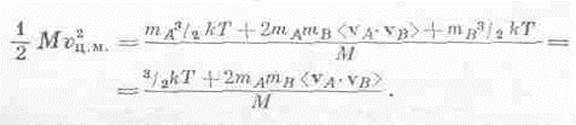 $\frac{1}{2} M v^2_{\text{ц.м.}} = \frac{m_A {}^3/_2 kT + 2m_A m_B \langle \mathbf{v}_A \cdot \mathbf{v}_B \rangle + m_B {}^3/_2 kT}{M} =$
$= \frac{{}^3/_2 kT + 2m_A m_B \langle \mathbf{v}_A \cdot \mathbf{v}_B \rangle}{M}.$